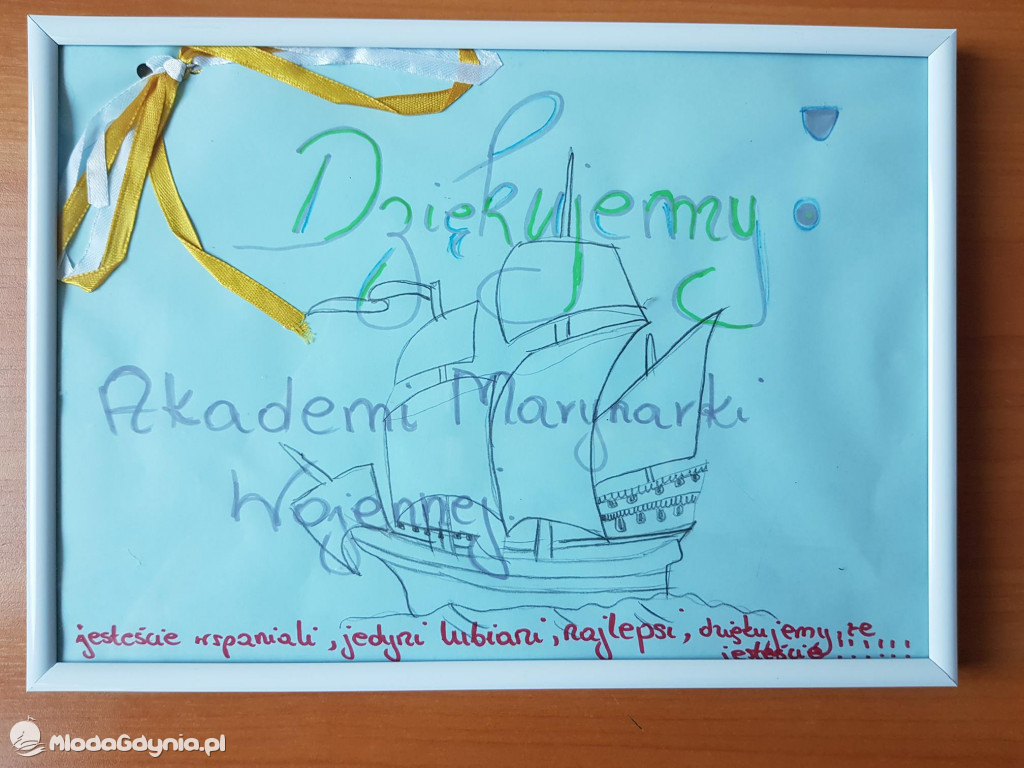 Dziękujemy !
Akademi Marynarki
Wojennej.
jesteście wspaniali, jedyni lubiani, najlepsi, dziękujemy, że
jesteście !!!!!!
MlodaGdynia.pl